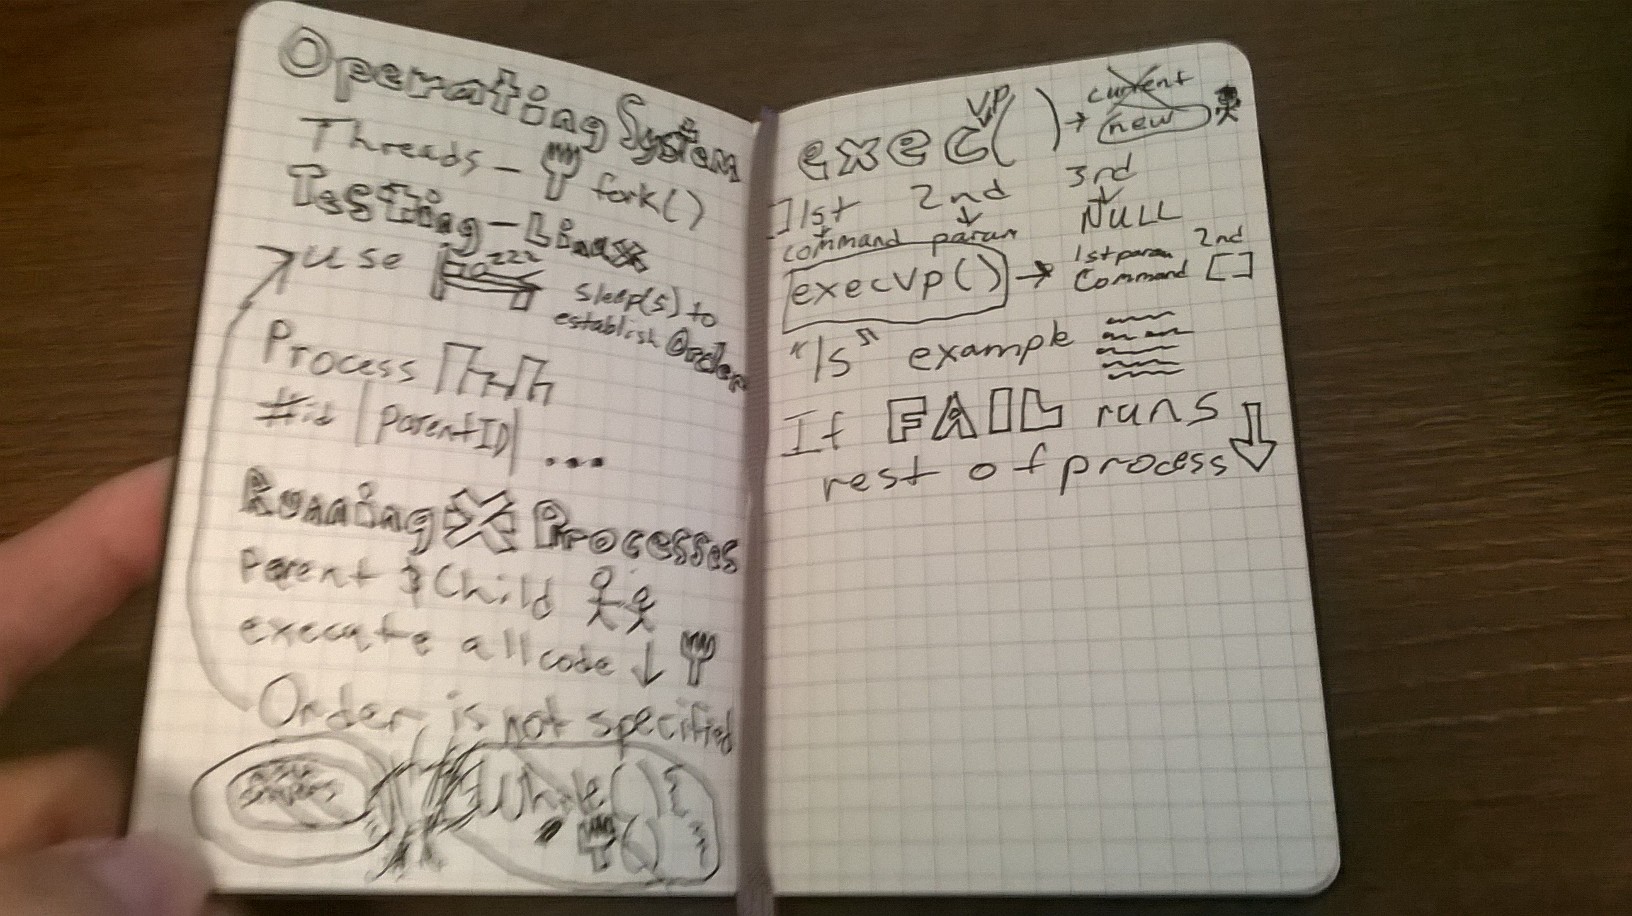 Operating System
Threads - fork()
Testing - Linux
use zzz
sleep(s) to
establish Order
Process
#id | parentID | ...
Running Processes
Parent & Child
execute all code ↓
Order is not specified
While() {
() }
exec vp( ) → current
new
1st 2nd 3rd
command param NULL
execvp() → 1st param 2nd
Command []
"ls" example
If FAIL runs
rest of process